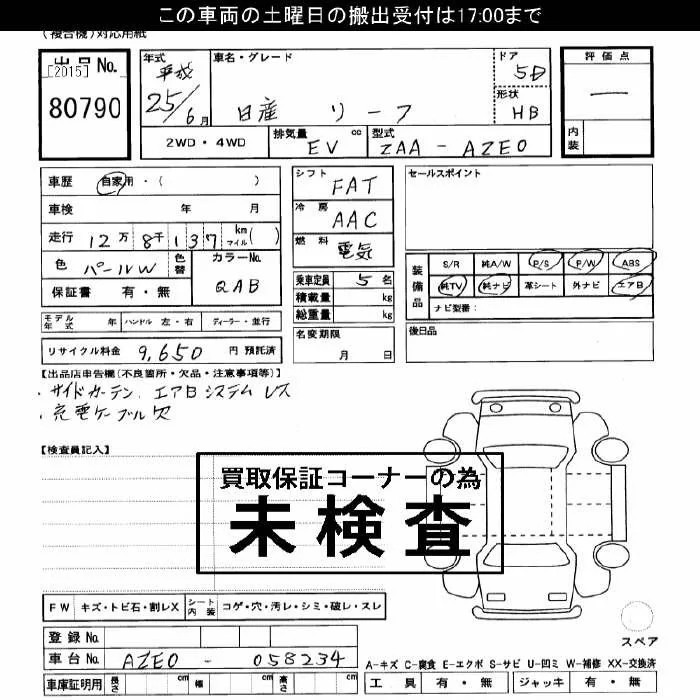 この車両の土曜日の搬出受付は17:00まで
(複合機)対応用紙
出品No.
[2015]
80790
年式 車名・グレード ドア 評価点
平成 5D
25/6月 日産 リーフ 形状 HB
―
内装
2WD・4WD 排気量 EV cc 型式 ZAA-AZE0
車歴 自家用・( )
車検 年 月
走行 12万8千137 km マイル( )
色 パールW 色替 カラーNo. QAB
保証書 有・無
シフト FAT
冷房 AAC
燃料 電気
乗車定員 5名
積載量 kg
総重量 kg
名変期限
月 日
セールスポイント
装備品 S/R 純A/W P/S P/W ABS
純TV 純ナビ 革シート 外ナビ エアB
ナビ型番:
後日品
モデル年式 年 ハンドル 左・右 ディーラー・並行
リサイクル料金 9,650 円 預託済
【出品店申告欄(不良箇所・欠品・注意事項等)】
・サイドカーテンエアBシステムレス
・充電ケーブル欠
【検査員記入】
買取保証コーナーの為
未検査
FW キズ・トビ石・割レX シート内装 コゲ・穴・汚レ・シミ・破レ・スレ
登録No.
車台No. AZE0-058234
車庫証明用 長さ cm 幅 cm 高さ cm
スペア
A-キズ C-腐食 E-エクボ S-サビ U-凹ミ W-補修 XX-交換済
工具 有・無 ジャッキ 有・無